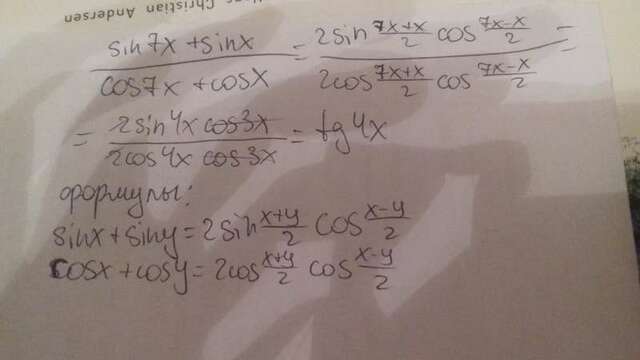 Hans Christian Andersen
sin7x + sinx / cos7x + cosx = 2sin (7x+x)/2 cos (7x-x)/2 / 2cos (7x+x)/2 cos (7x-x)/2 =
= 2sin4x cos3x / 2cos4x cos3x = tg4x
формулы:
sinx + siny = 2sin (x+y)/2 cos (x-y)/2
cosx + cosy = 2cos (x+y)/2 cos (x-y)/2